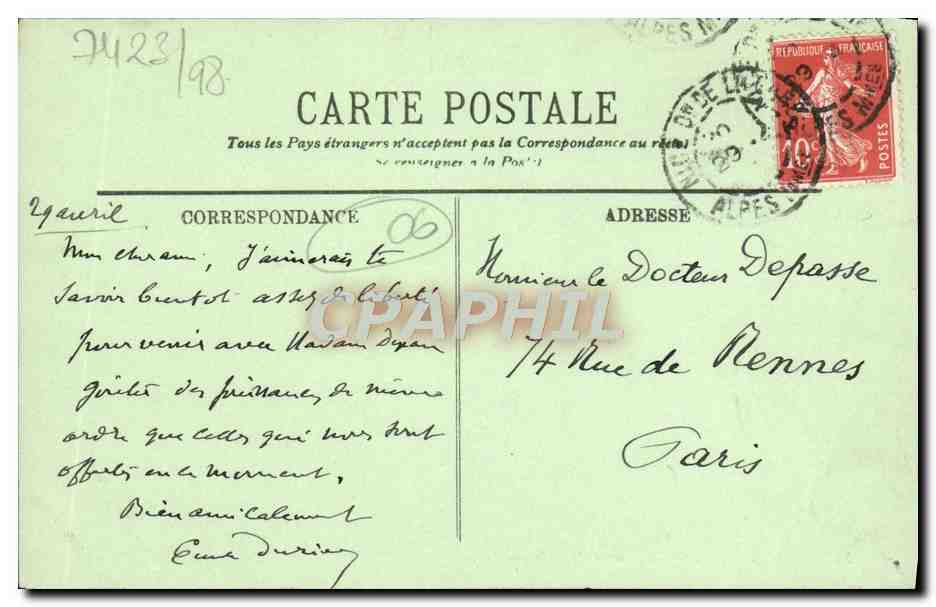 7423/98
ALPES M
CARTE POSTALE
Tous les Pays étrangers n'acceptent pas la Correspondance au recto
Se renseigner à la Poste
REPUBLIQUE FRANÇAISE
10 c
POSTES
DE L
29
ALPES MMES
29 avril
CORRESPONDANCE
06
ADRESSE
Mon cher ami, J'aimerais te
savoir bientôt assez de liberté
pour venir avec Madame Depasse
goûter des puissances de même
ordre que celles qui nous sont
offertes en ce moment.
Bien amicalement
Monsieur le Docteur Depasse
74 Rue de Rennes
Paris
CPAPHIL